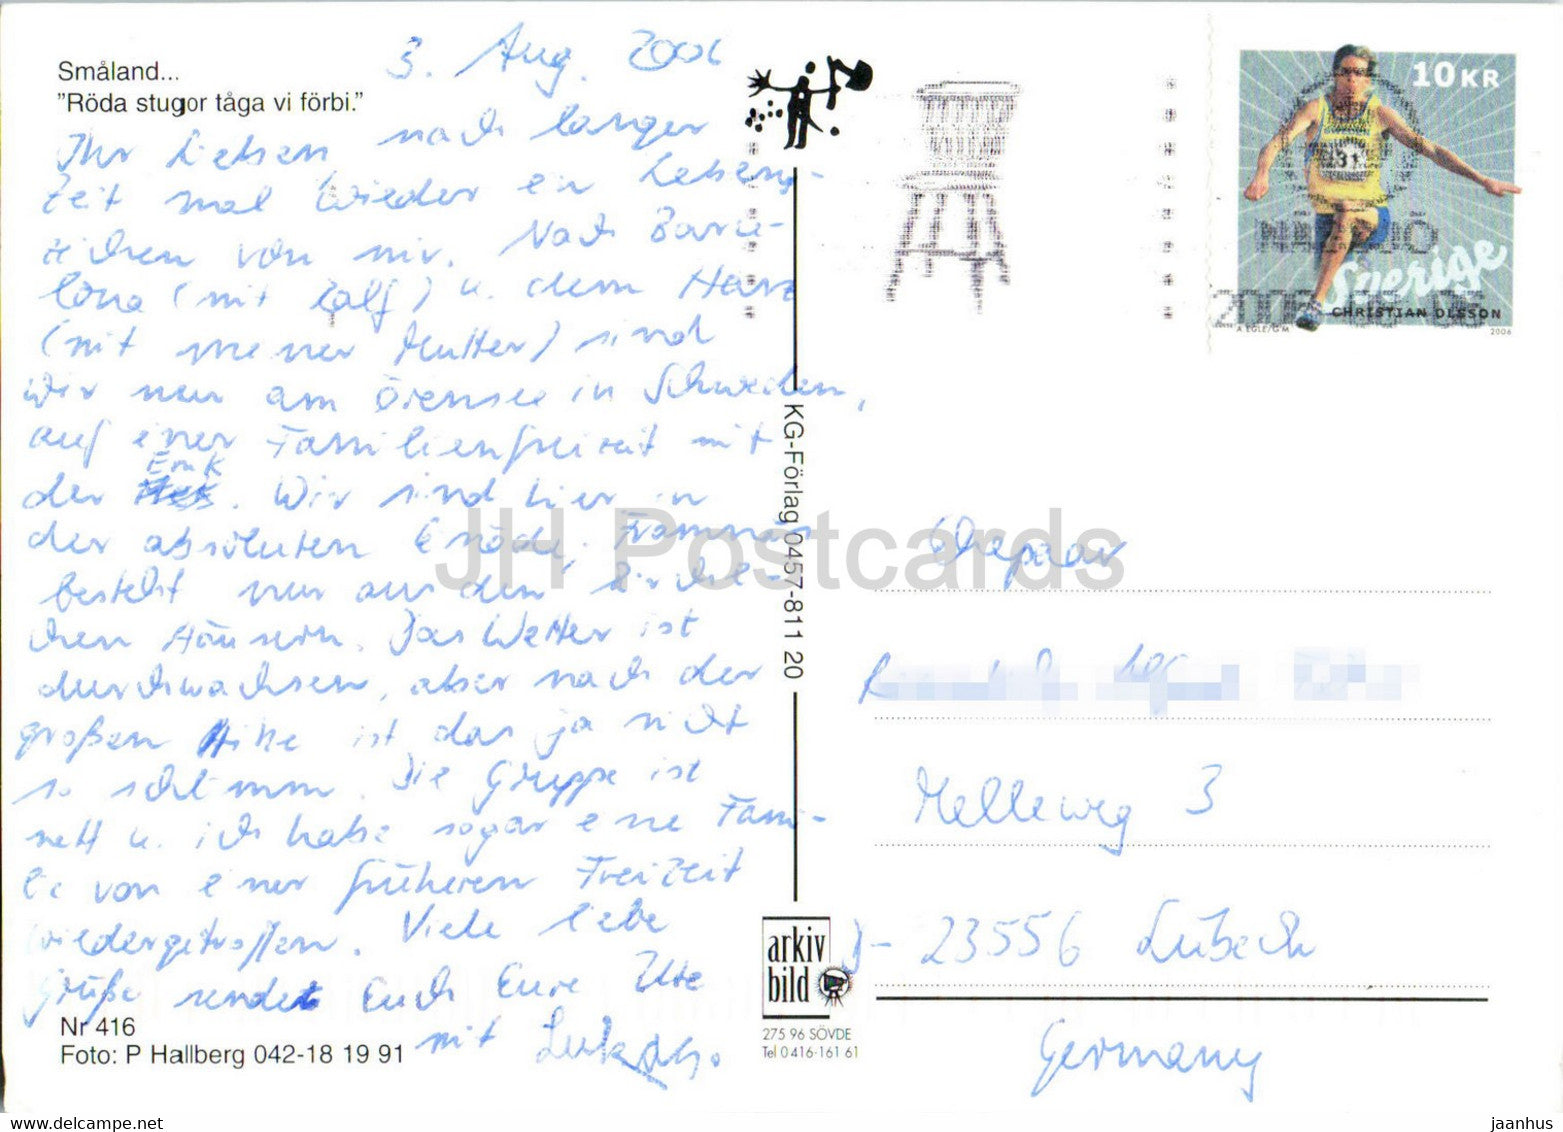 Småland...
"Röda stugor tåga vi förbi."
3. Aug. 2006
Ihr Lieben nach langer
Zeit mal wieder ein Lebens-
zeichen von mir. Nach Barce-
lona (mit Ralf) u. dem Harz
(mit meiner Mutter) sind
wir nun am Örensee in Schweden,
auf einer Familienfreizeit mit
der EmK. Wir sind hier in
der absoluten Einöde. Framnäs
besteht nur aus den kirchli-
chen Häusern. Das Wetter ist
durchwachsen, aber nach der
großen Hitze ist das ja nicht
so schlimm. Die Gruppe ist
nett u. ich habe sogar eine Fami-
lie von einer früheren Freizeit
wiedergetroffen. Viele liebe
Grüße sendet Euch Eure Ute
mit Lukas.
Nr 416
Foto: P Hallberg 042-18 19 91
KG-Förlag 0457-811 20
arkiv
bild
275 96 SÖVDE
Tel 0416-161 61
10 KR
31
Sverige
CHRISTIAN OLSSON
A EGLE/G M
2006
Melleweg 3
D-23556 Lübeck
Germany
JH Postcards
www.delcampe.net
jaanhus